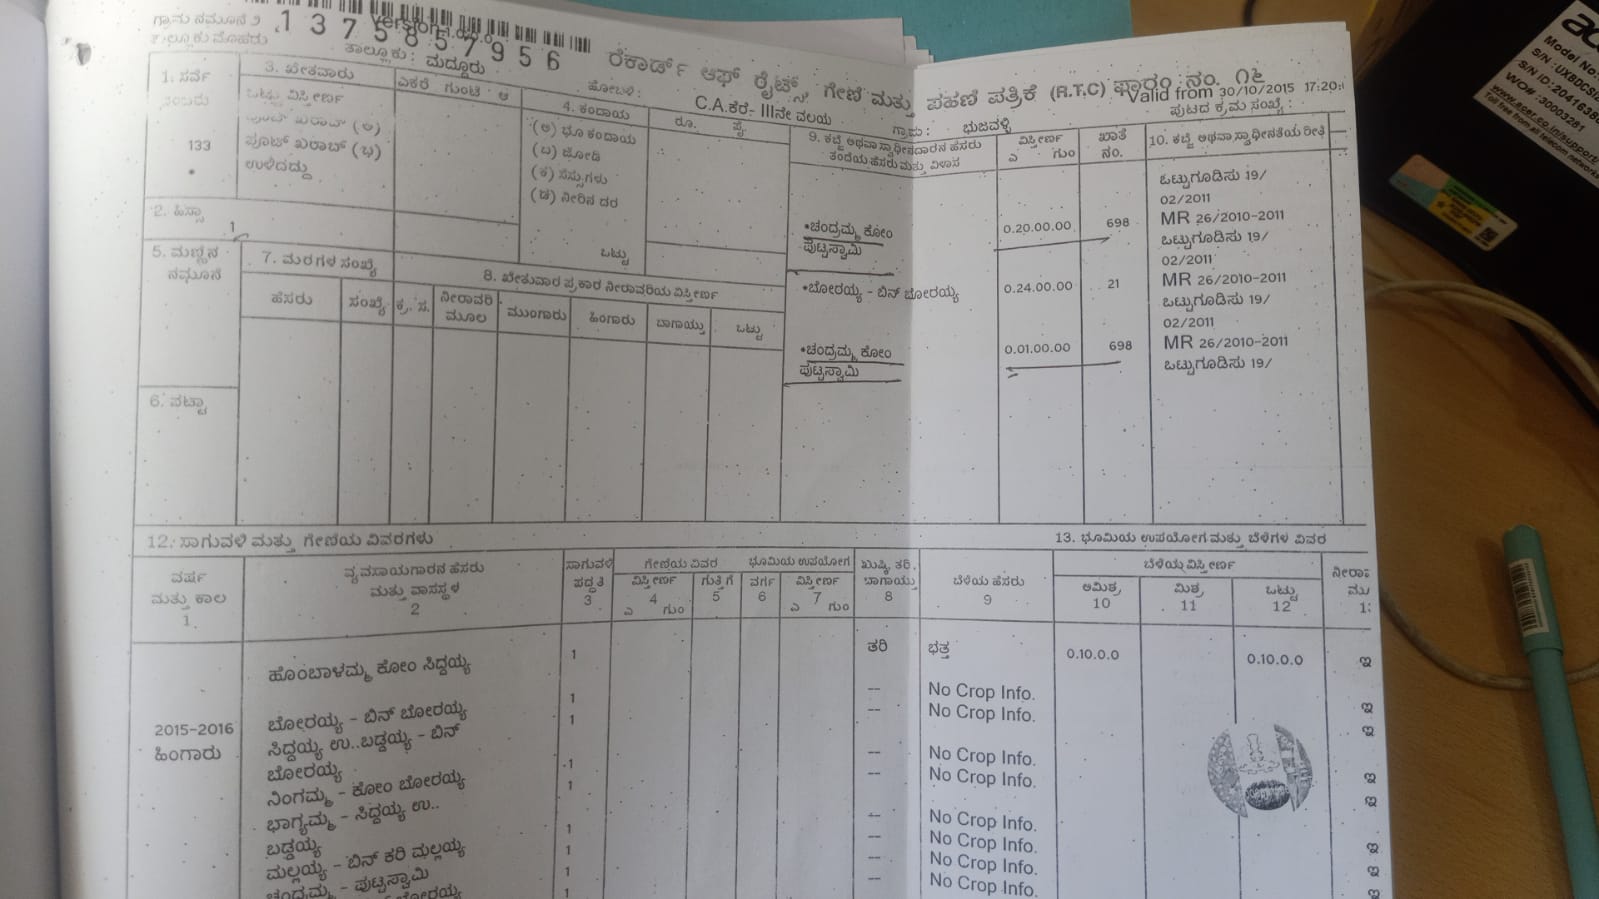 ಗ್ರಾಮ ನಮೂನೆ ೨
1375857956
Version 1.0.0.0
ತಾಲ್ಲೂಕು: ಮದ್ದೂರು
ಹೋಬಳಿ: C.A.ಕೆರೆ- IIIನೇ ವಲಯ
ರೆಕಾರ್ಡ್ಸ್ ಆಫ್ ರೈಟ್ಸ್, ಗೇಣಿ ಮತ್ತು ಪಹಣಿ ಪತ್ರಿಕೆ (R.T.C) ಫಾರಂ ನಂ. ೧೬
Valid from 30/10/2015 17:20
ಗ್ರಾಮ: ಭುಜವಳ್ಳಿ
ಪುಟದ ಕ್ರಮ ಸಂಖ್ಯೆ:
1. ಸರ್ವೆ ನಂಬರು
133
3. ಖೇತವಾರು
ಎಕರೆ ಗುಂಟೆ ಆ
ಒಟ್ಟು ವಿಸ್ತೀರ್ಣ
ಪೂಟ್ ಖರಾಬ್ (ಅ)
ಪೂಟ್ ಖರಾಬ್ (ಭ)
ಉಳಿದದ್ದು
4. ಕಂದಾಯ
ರೂ. ಪೈ.
(ಅ) ಭೂ ಕಂದಾಯ
(ಬ) ಜೋಡಿ
(ಕ) ಸೆಸ್ಸುಗಳು
(ಡ) ನೀರಿನ ದರ
ಒಟ್ಟು
2. ಹಿಸ್ಸಾ
1
5. ಮಣ್ಣಿನ ನಮೂನೆ
6. ಪಟ್ಟಾ
7. ಮರಗಳ ಸಂಖ್ಯೆ
ಹೆಸರು ಸಂಖ್ಯೆ
8. ಖೇತುವಾರ ಪ್ರಕಾರ ನೀರಾವರಿಯ ವಿಸ್ತೀರ್ಣ
ಕ್ರ. ಸ. ನೀರಾವರಿ ಮೂಲ ಮುಂಗಾರು ಹಿಂಗಾರು ಬಾಗಾಯ್ತು ಒಟ್ಟು
9. ಕಬ್ಜೆ ಅಥವಾ ಸ್ವಾಧೀನದಾರನ ಹೆಸರು
ತಂದೆಯ ಹೆಸರು ಮತ್ತು ವಿಳಾಸ
ವಿಸ್ತೀರ್ಣ
ಎ ಗುಂ
ಖಾತೆ ನಂ.
10. ಕಬ್ಜೆ ಅಥವಾ ಸ್ವಾಧೀನತೆಯ ರೀತಿ
ಒಟ್ಟುಗೂಡಿಸು 19/
02/2011
ಚಂದ್ರಮ್ಮ ಕೋಂ ಪುಟ್ಟಸ್ವಾಮಿ 0.20.00.00 698 MR 26/2010-2011
ಒಟ್ಟುಗೂಡಿಸು 19/
02/2011
ಬೋರಯ್ಯ - ಬಿನ್ ಬೋರಯ್ಯ 0.24.00.00 21 MR 26/2010-2011
ಒಟ್ಟುಗೂಡಿಸು 19/
02/2011
ಚಂದ್ರಮ್ಮ ಕೋಂ ಪುಟ್ಟಸ್ವಾಮಿ 0.01.00.00 698 MR 26/2010-2011
ಒಟ್ಟುಗೂಡಿಸು 19/
12. ಸಾಗುವಳಿ ಮತ್ತು ಗೇಣಿಯ ವಿವರಗಳು
13. ಭೂಮಿಯ ಉಪಯೋಗ ಮತ್ತು ಬೆಳೆಗಳ ವಿವರ
ವರ್ಷ ಮತ್ತು ಕಾಲ 1
ವ್ಯವಸಾಯಗಾರನ ಹೆಸರು ಮತ್ತು ವಾಸಸ್ಥಳ 2
ಸಾಗುವಳಿ ಪದ್ಧತಿ 3
ಗೇಣಿಯ ವಿವರ
ವಿಸ್ತೀರ್ಣ 4 ಎ ಗುಂ
ಗುತ್ತಿಗೆ 5
ಭೂಮಿಯ ಉಪಯೋಗ
ವರ್ಗ 6
ವಿಸ್ತೀರ್ಣ 7 ಎ ಗುಂ
ಖುಷ್ಕಿ, ತರಿ, ಬಾಗಾಯ್ತು 8
ಬೆಳೆಯ ಹೆಸರು 9
ಬೆಳೆಯ ವಿಸ್ತೀರ್ಣ
ಅಮಿಶ್ರ 10
ಮಿಶ್ರ 11
ಒಟ್ಟು 12
2015-2016 ಹಿಂಗಾರು
ಹೊಂಬಾಳಮ್ಮ ಕೋಂ ಸಿದ್ದಯ್ಯ 1 ತರಿ ಭತ್ತ 0.10.0.0 0.10.0.0
ಬೋರಯ್ಯ - ಬಿನ್ ಬೋರಯ್ಯ 1 -- No Crop Info.
ಸಿದ್ದಯ್ಯ ಉ..ಬಡ್ಡಯ್ಯ - ಬಿನ್ 1 -- No Crop Info.
ಬೋರಯ್ಯ
ನಿಂಗಮ್ಮ - ಕೋಂ ಬೋರಯ್ಯ 1 -- No Crop Info.
ಭಾಗ್ಯಮ್ಮ - ಸಿದ್ದಯ್ಯ ಉ.. 1 -- No Crop Info.
ಬಡ್ಡಯ್ಯ
ಮಲ್ಲಯ್ಯ - ಬಿನ್ ಕರಿ ಮಲ್ಲಯ್ಯ 1 -- No Crop Info.
ಚಂದ್ರಮ್ಮ - ಪುಟ್ಟಸ್ವಾಮಿ 1 -- No Crop Info.
1 -- No Crop Info.
1 -- No Crop Info.
Model No.
WO# :30003281
www.acer.co.in/support